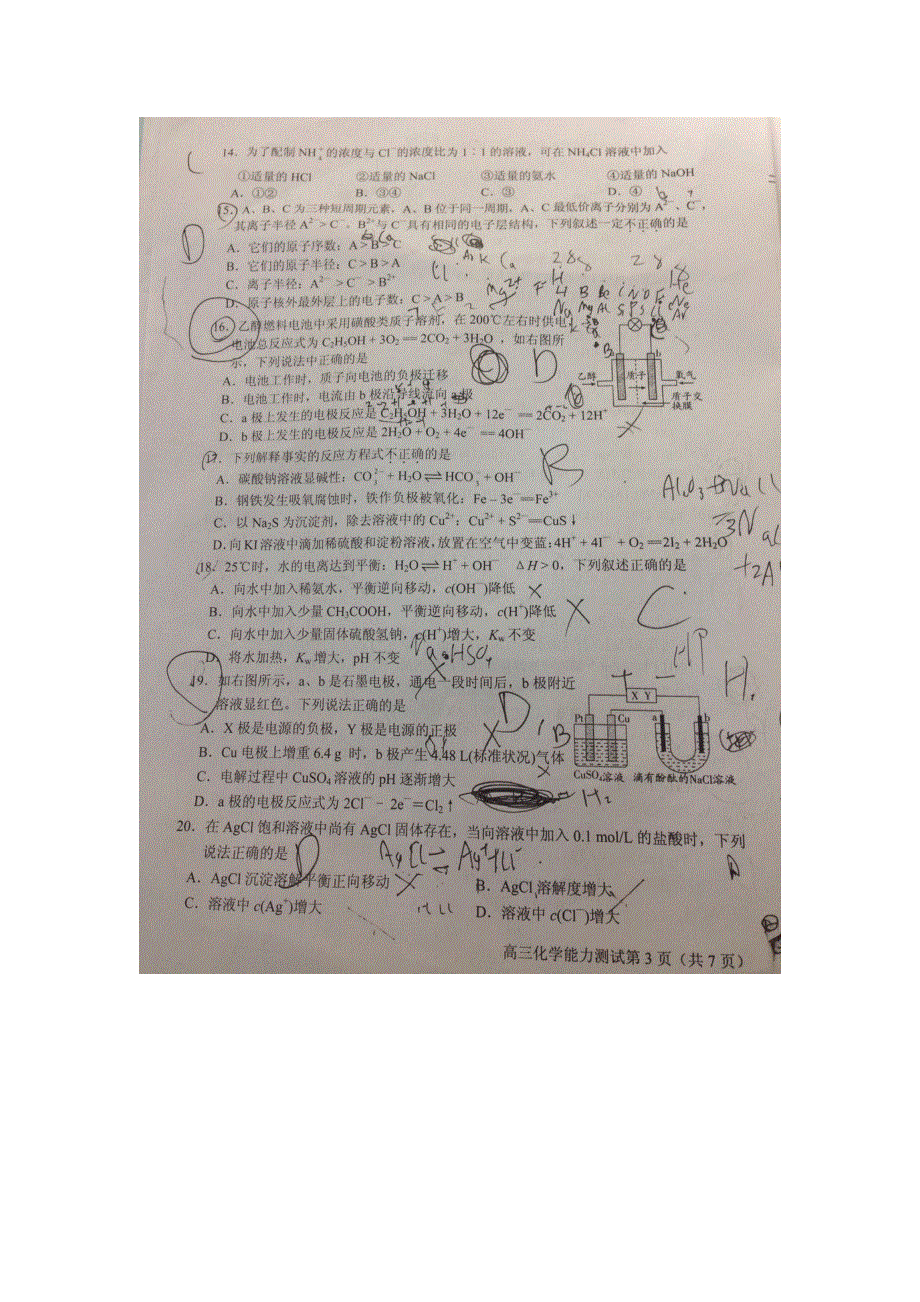 14．为了配制 NH₄⁺ 的浓度与 Cl⁻的浓度比为 1∶1 的溶液，可在 NH₄Cl 溶液中加入
①适量的 HCl ②适量的 NaCl ③适量的氨水 ④适量的 NaOH
A．①② B．③④ C．③ D．④
15．A、B、C 为三种短周期元素，A、B 位于同一周期，A、C 最低价离子分别为 A²⁻、C⁻，
其离子半径 A²⁻ > C⁻，B²⁺与 C⁻具有相同的电子层结构，下列叙述一定不正确的是
A．它们的原子序数：A > B > C
B．它们的原子半径：C > B > A
C．离子半径：A²⁻ > C⁻ > B²⁺
D．原子核外最外层上的电子数：C > A > B
D
16．乙醇燃料电池中采用磺酸类质子溶剂，在 200℃左右时供电，
电池总反应式为 C₂H₅OH + 3O₂ == 2CO₂ + 3H₂O ，如右图所
示，下列说法中正确的是
A．电池工作时，质子向电池的负极迁移
B．电池工作时，电流由 b 极沿导线流向 a 极
C．a 极上发生的电极反应是 C₂H₅OH + 3H₂O + 12e⁻ == 2CO₂ + 12H⁺
D．b 极上发生的电极反应是 2H₂O + O₂ + 4e⁻ == 4OH⁻
D
乙醇 质子 氧气
质子交
换膜
17．下列解释事实的反应方程式不正确的是
A．碳酸钠溶液显碱性：CO₃²⁻ + H₂O⇌HCO₃⁻ + OH⁻
B．钢铁发生吸氧腐蚀时，铁作负极被氧化：Fe – 3e⁻==Fe³⁺
C．以 Na₂S 为沉淀剂，除去溶液中的 Cu²⁺：Cu²⁺ + S²⁻==CuS↓
D．向 KI 溶液中滴加稀硫酸和淀粉溶液，放置在空气中变蓝：4H⁺ + 4I⁻ + O₂ ==2I₂ + 2H₂O
B
18．25℃时，水的电离达到平衡：H₂O⇌H⁺ + OH⁻ ΔH > 0，下列叙述正确的是
A．向水中加入稀氨水，平衡逆向移动，c(OH⁻)降低
B．向水中加入少量 CH₃COOH，平衡逆向移动，c(H⁺)降低
C．向水中加入少量固体硫酸氢钠，c(H⁺)增大，Kw 不变
D．将水加热，Kw 增大，pH 不变
C
19．如右图所示，a、b 是石墨电极，通电一段时间后，b 极附近
溶液显红色。下列说法正确的是
A．X 极是电源的负极，Y 极是电源的正极
B．Cu 电极上增重 6.4 g 时，b 极产生 4.48 L(标准状况)气体
C．电解过程中 CuSO₄ 溶液的 pH 逐渐增大
D．a 极的电极反应式为 2Cl⁻－2e⁻＝Cl₂↑
D
X Y
Pt Cu a b
CuSO₄溶液 滴有酚酞的NaCl溶液
H₂
20．在 AgCl 饱和溶液中尚有 AgCl 固体存在，当向溶液中加入 0.1 mol/L 的盐酸时，下列
说法正确的是
D
AgCl⇌Ag⁺+Cl⁻
A．AgCl 沉淀溶解平衡正向移动 B．AgCl 溶解度增大
C．溶液中 c(Ag⁺)增大 D．溶液中 c(Cl⁻)增大
HCl
高三化学能力测试第 3 页（共 7 页）